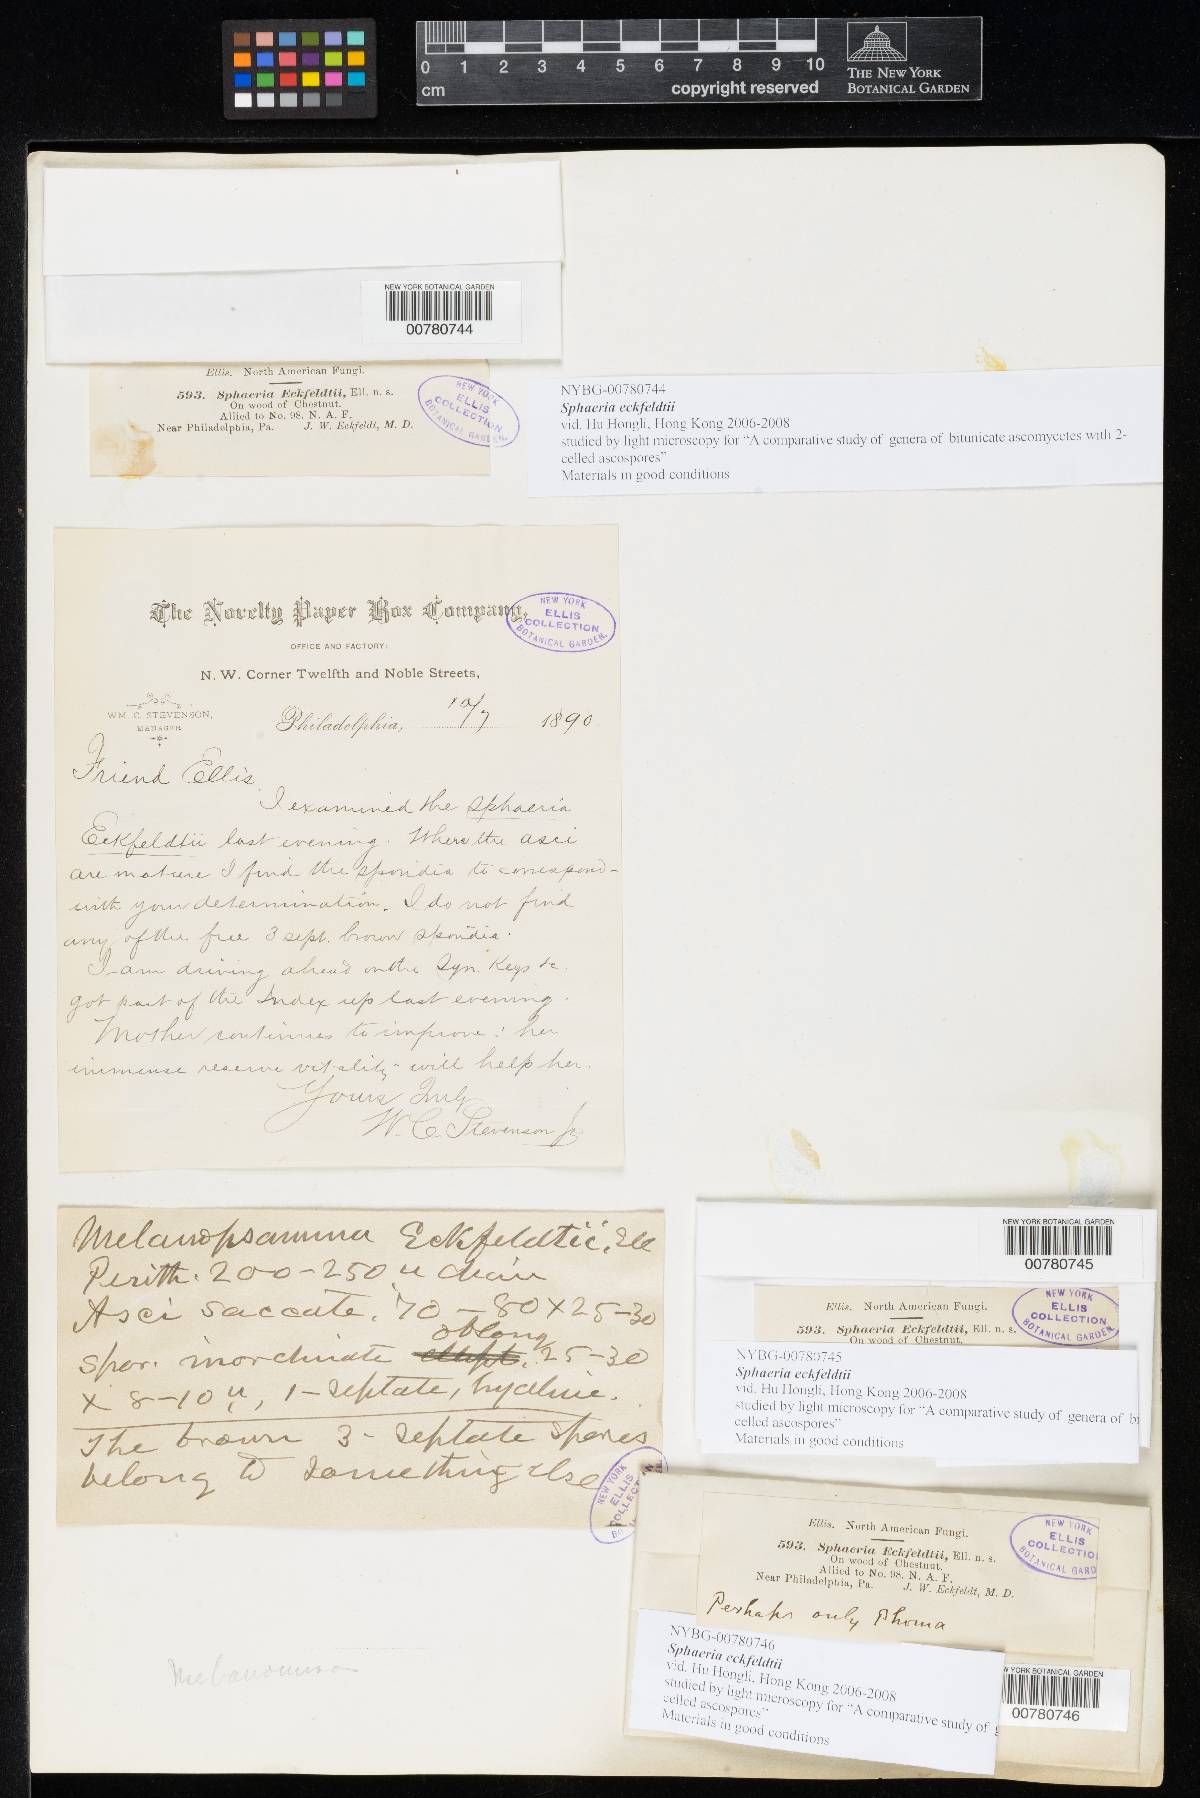 0 1 2 3 4 5 6 7 8 9 10
cm
copyright reserved
THE NEW YORK
BOTANICAL GARDEN
NEW YORK BOTANICAL GARDEN
00780744
Ellis. North American Fungi.
593. Sphaeria Eckfeldtii, Ell. n. s.
On wood of Chestnut.
Allied to No. 98. N. A. F.
Near Philadelphia, Pa. J. W. Eckfeldt, M. D.
NEW YORK
ELLIS
COLLECTION
BOTANICAL GARDEN.
NYBG-00780744
Sphaeria eckfeldtii
vid. Hu Hongli, Hong Kong 2006-2008
studied by light microscopy for “A comparative study of genera of bitunicate ascomycetes with 2-
celled ascospores”
Materials in good conditions
The Novelty Paper Box Company,
NEW YORK
ELLIS
COLLECTION
BOTANICAL GARDEN.
OFFICE AND FACTORY:
N. W. Corner Twelfth and Noble Streets,
WM. C. STEVENSON,
MANAGER
Philadelphia, 10/7 1890
Friend Ellis
I examined the Sphaeria
Eckfeldtii last evening. Where the asci
are mature I find the sporidia to correspond-
with your determination. I do not find
any of the free 3 sept. brown sporidia.
I am driving ahead on the Syn. Keys &c.
got part of the Index up last evening.
Mother continues to improve: her
immense reserve vitality will help her.
Yours Truly
W. C. Stevenson Jr
Melanopsamma Eckfeldtii, Ell
Perith. 200-250 u diam
Asci saccate, 70-80 x 25-30
Spor. inordinate oblong 25-30
x 8-10 u, 1-septate, hyaline.
The brown 3-septate spores
belong to something else
NEW YORK
ELLIS
COLLECT
BO
Melanomma
NEW YORK BOTANICAL GARDEN
00780745
Ellis. North American Fungi.
593. Sphaeria Eckfeldtii, Ell. n. s.
On wood of Chestnut.
NEW YORK
ELLIS
COLLECTION
BOTANICAL GARDEN.
NYBG-00780745
Sphaeria eckfeldtii
vid. Hu Hongli, Hong Kong 2006-2008
studied by light microscopy for “A comparative study of genera of bi
celled ascospores”
Materials in good conditions
Ellis. North American Fungi.
593. Sphaeria Eckfeldtii, Ell. n. s.
On wood of Chestnut.
Allied to No. 98. N. A. F.
Near Philadelphia, Pa. J. W. Eckfeldt, M. D.
NEW YORK
ELLIS
COLLECTIO
BOTANICAL GARD
Perhaps only Phoma
NYBG-00780746
Sphaeria eckfeldtii
vid. Hu Hongli, Hong Kong 2006-2008
studied by light microscopy for “A comparative study of g
celled ascospores”
Materials in good conditions
NEW YORK BOTANICAL GARDEN
00780746